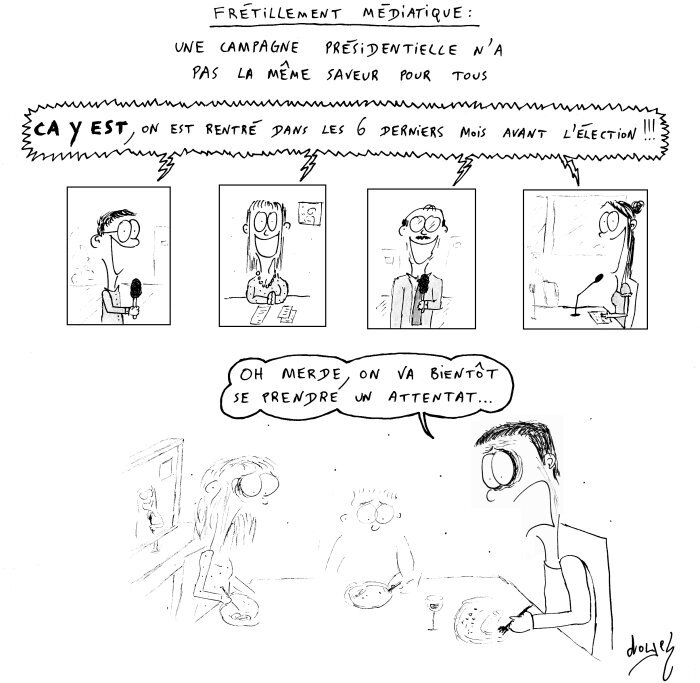 FRÉTILLEMENT MÉDIATIQUE :
UNE CAMPAGNE PRÉSIDENTIELLE N'A
PAS LA MÊME SAVEUR POUR TOUS
CA Y EST, ON EST RENTRÉ DANS LES 6 DERNIERS MOIS AVANT L'ÉLECTION !!!
OH MERDE, ON VA BIENTÔT
SE PRENDRE UN ATTENTAT...